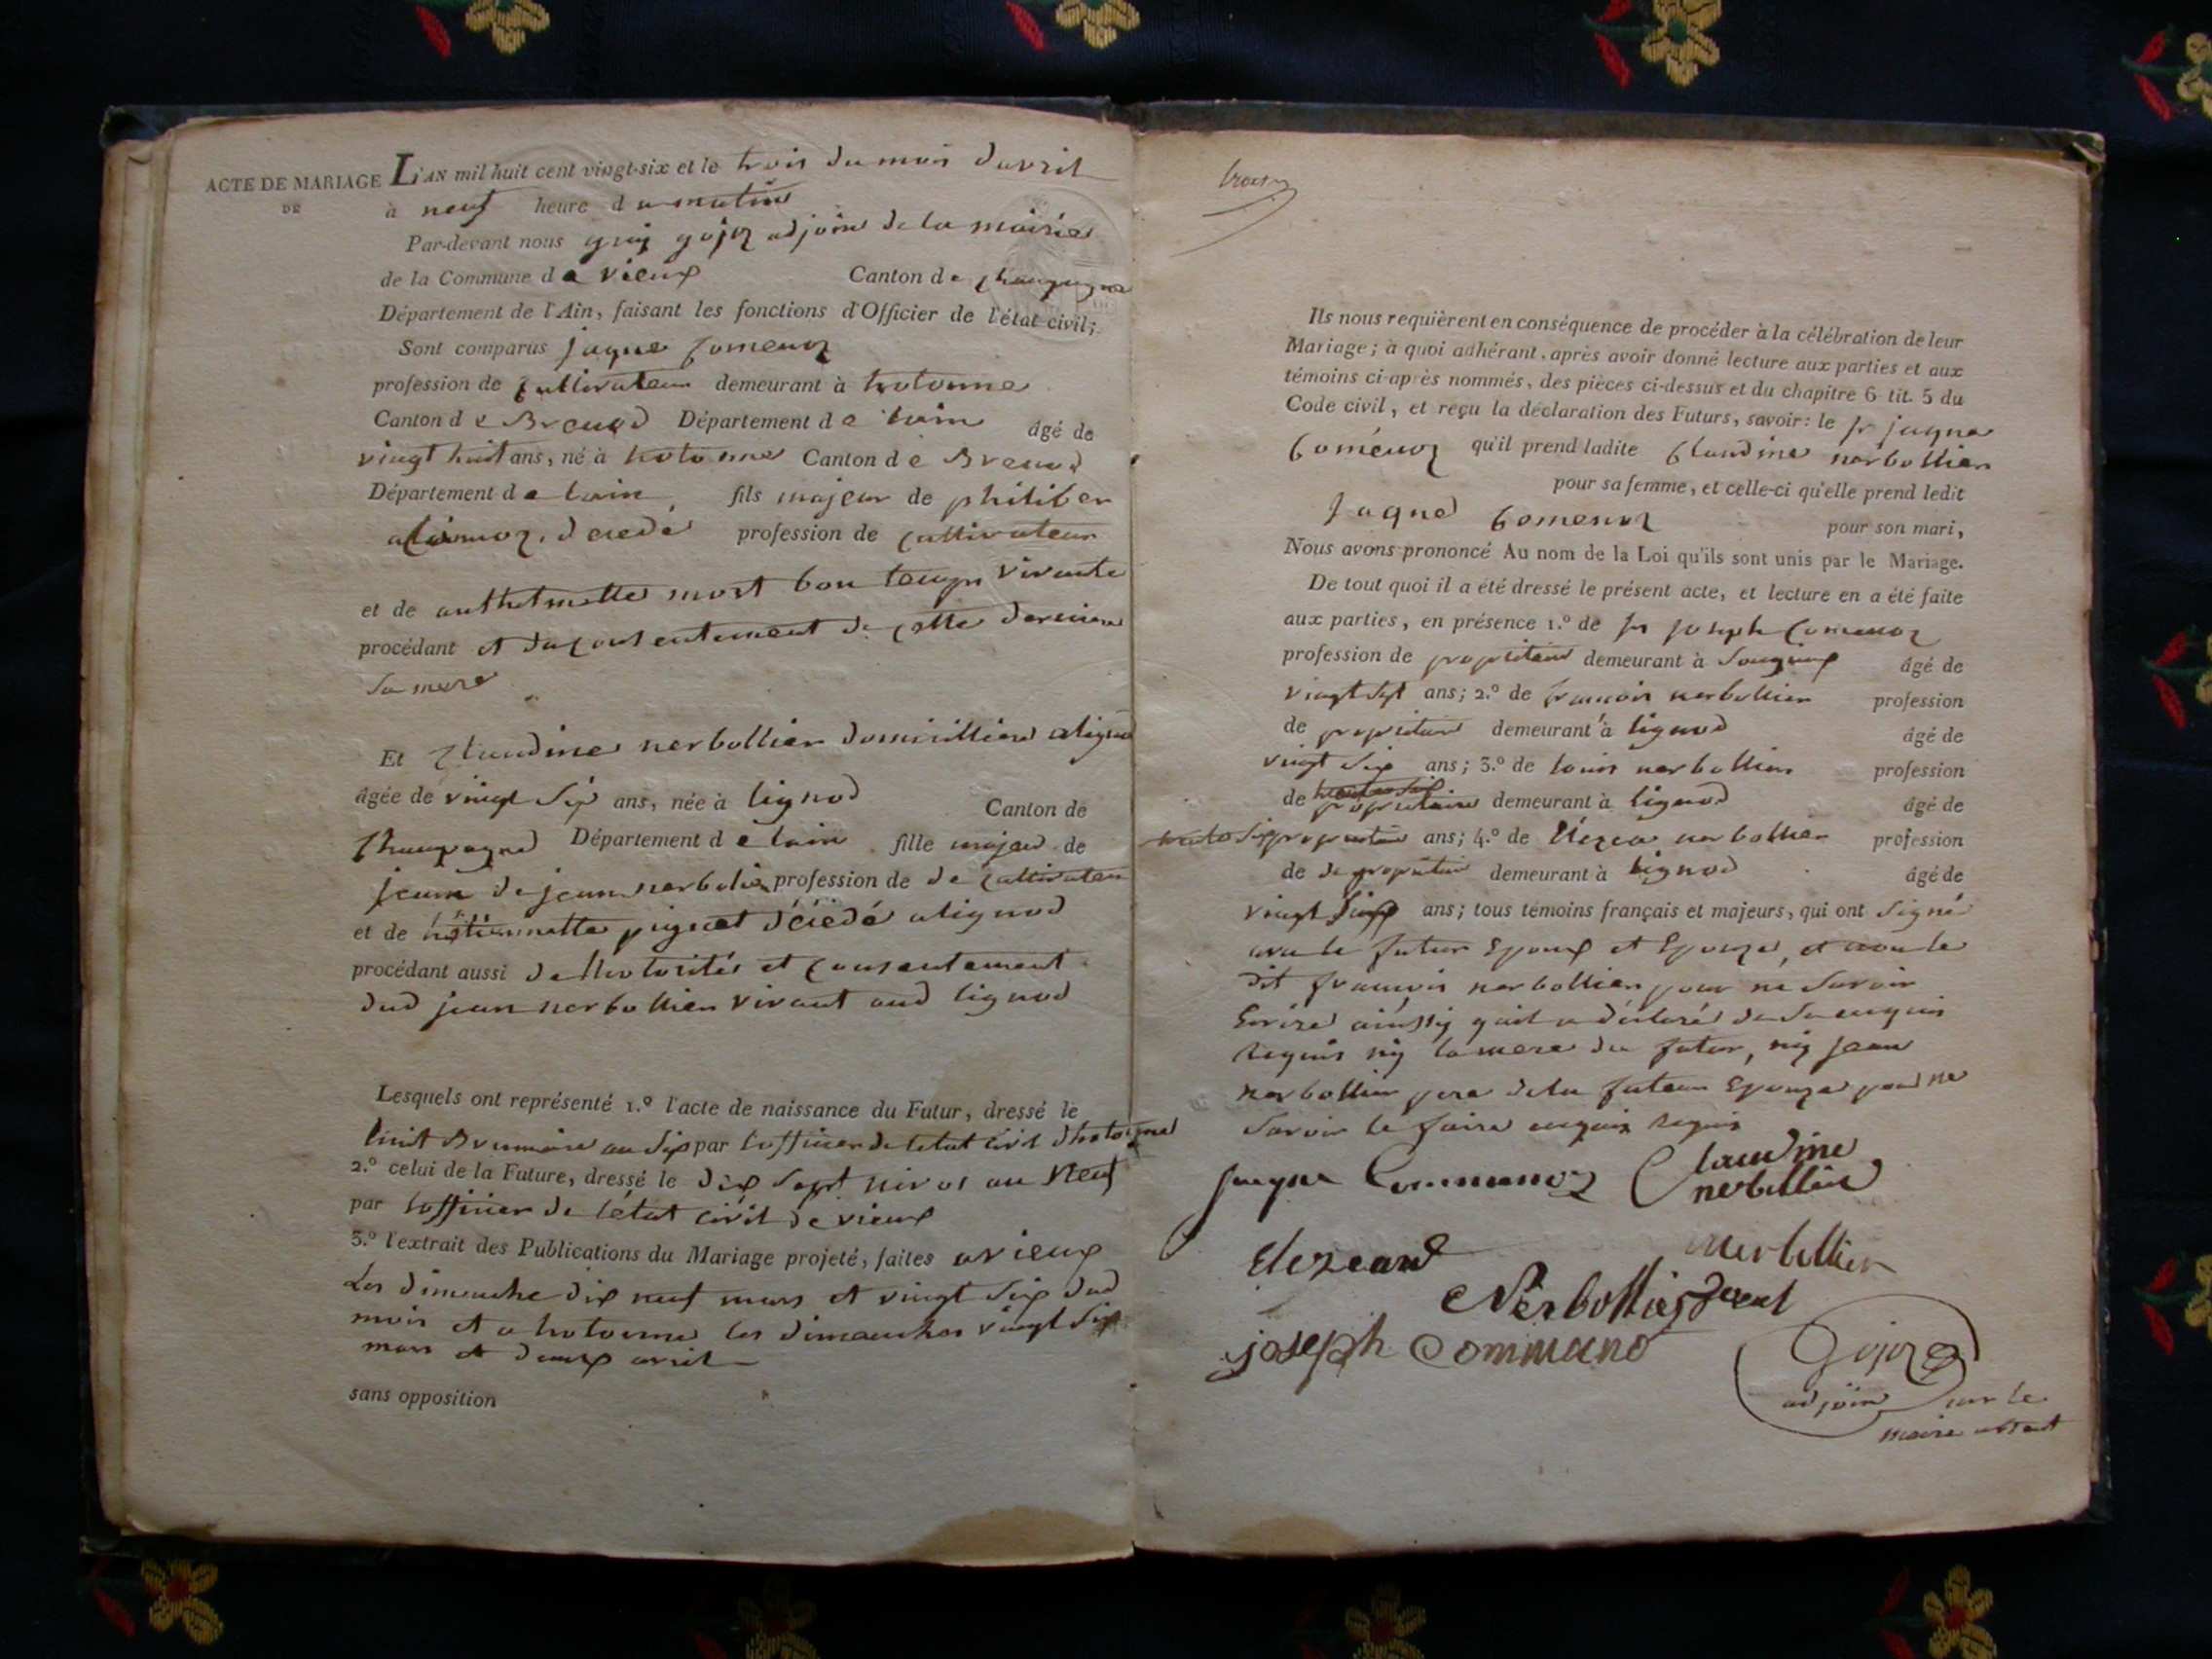 ACTE DE MARIAGE
DE
L'AN mil huit cent vingt-six et le trois du mois davril
à neuf heure du matin
Par-devant nous guy gojoz adjoin de la mairie
de la Commune de vieux Canton de champagne
Département de l'Ain, faisant les fonctions d'Officier de l'état civil;
Sont comparus jaque Comenoz
profession de Cultivateur demeurant à hotonne
Canton de Brenod Département de lain âgé de
vingt huit ans, né à hotonne Canton de Brenod
Département de lain fils majeur de philiber
decedé profession de Cultivateur
et de anthelmette mort bon temps vivante
procédant et du Consentement de Cette derniere
Sa mere
Et Claudine nerbollier domicilliere alignod
âgée de vingt Six ans, née à lignod Canton de
Champagne Département de lain fille majeur de
jean de jean nerbolier profession de de Cultivateur
et de pignet décédé alignod
procédant aussi de Consentement
dud jean nerbollier vivant aud lignod
Lesquels ont représenté 1.º l'acte de naissance du Futur, dressé le
huit Brumaire an Six par lofficier de letat civil dhotonne
2.º celui de la Future, dressé le dix Sept nivos an Neuf
par lofficier de létat civil de vieux
3.º l'extrait des Publications du Mariage projeté, faites avieux
Les dimanche dix neuf mars et vingt Six dud
mois et a hotonne les dimanches vingt Six
mars et deux avril
sans opposition
Ils nous requièrent en conséquence de procéder à la célébration de leur
Mariage; à quoi adhérant, après avoir donné lecture aux parties et aux
témoins ci-après nommés, des pièces ci-dessus et du chapitre 6 tit. 5 du
Code civil, et reçu la déclaration des Futurs, savoir: le Sr jaque
Coménoz qu'il prend ladite Claudine nerbollier
pour sa femme, et celle-ci qu'elle prend ledit
Jaque Comenoz pour son mari,
Nous avons prononcé Au nom de la Loi qu'ils sont unis par le Mariage.
De tout quoi il a été dressé le présent acte, et lecture en a été faite
aux parties, en présence 1.º de Sr joseph Comenoz
profession de propritaire demeurant à Songieux âgé de
vingt Sept ans; 2.º de francois nerbollier profession
de propritaire demeurant à lignod âgé de
vingt Six ans; 3.º de louis nerbollier profession
de propritaire demeurant à lignod âgé de
trente Six ans; 4.º de nerbollier profession
de de propritaire demeurant à lignod âgé de
vingt ans; tous témoins français et majeurs, qui ont Signé
avec le futur Epoux et Epouze, et non le
dit francois nerbollier pour ne Savoir
Ecrire ainssy quil a déclaré de Se enquis
Requis ny la mere du futur, ny jean
nerbollier pere de la future Epouze pour ne
Savoir le faire enquis Requis
jaque Commenoz Claudine
nerbollier
nerbollier
Nerbollier
joseph Commano
Gojoz
adjoin pour le
maire absent